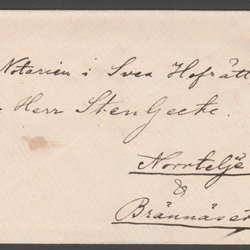 Notarien i Svea Hofrätt
Herr Sten Geete.
Norrtelje
&
Brännäset